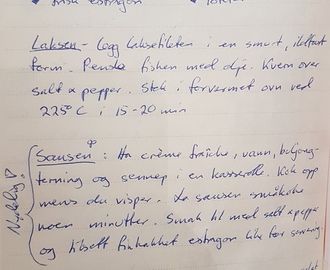 frisk estragon
Laksen - Legg laksefileten i en smurt, ildfast
form. Pensle fisken med olje. Kvern over
salt & pepper. Stek i forvarmet ovn ved
225°C i 15-20 min
Nydelig!
Sausen: Ha crème fraîche, vann, buljong-
terning og sennep i en kasserolle. Kok opp
mens du visper. La sausen småkoke
noen minutter. Smak til med salt & pepper
og tilsett finhakket estragon like før servering